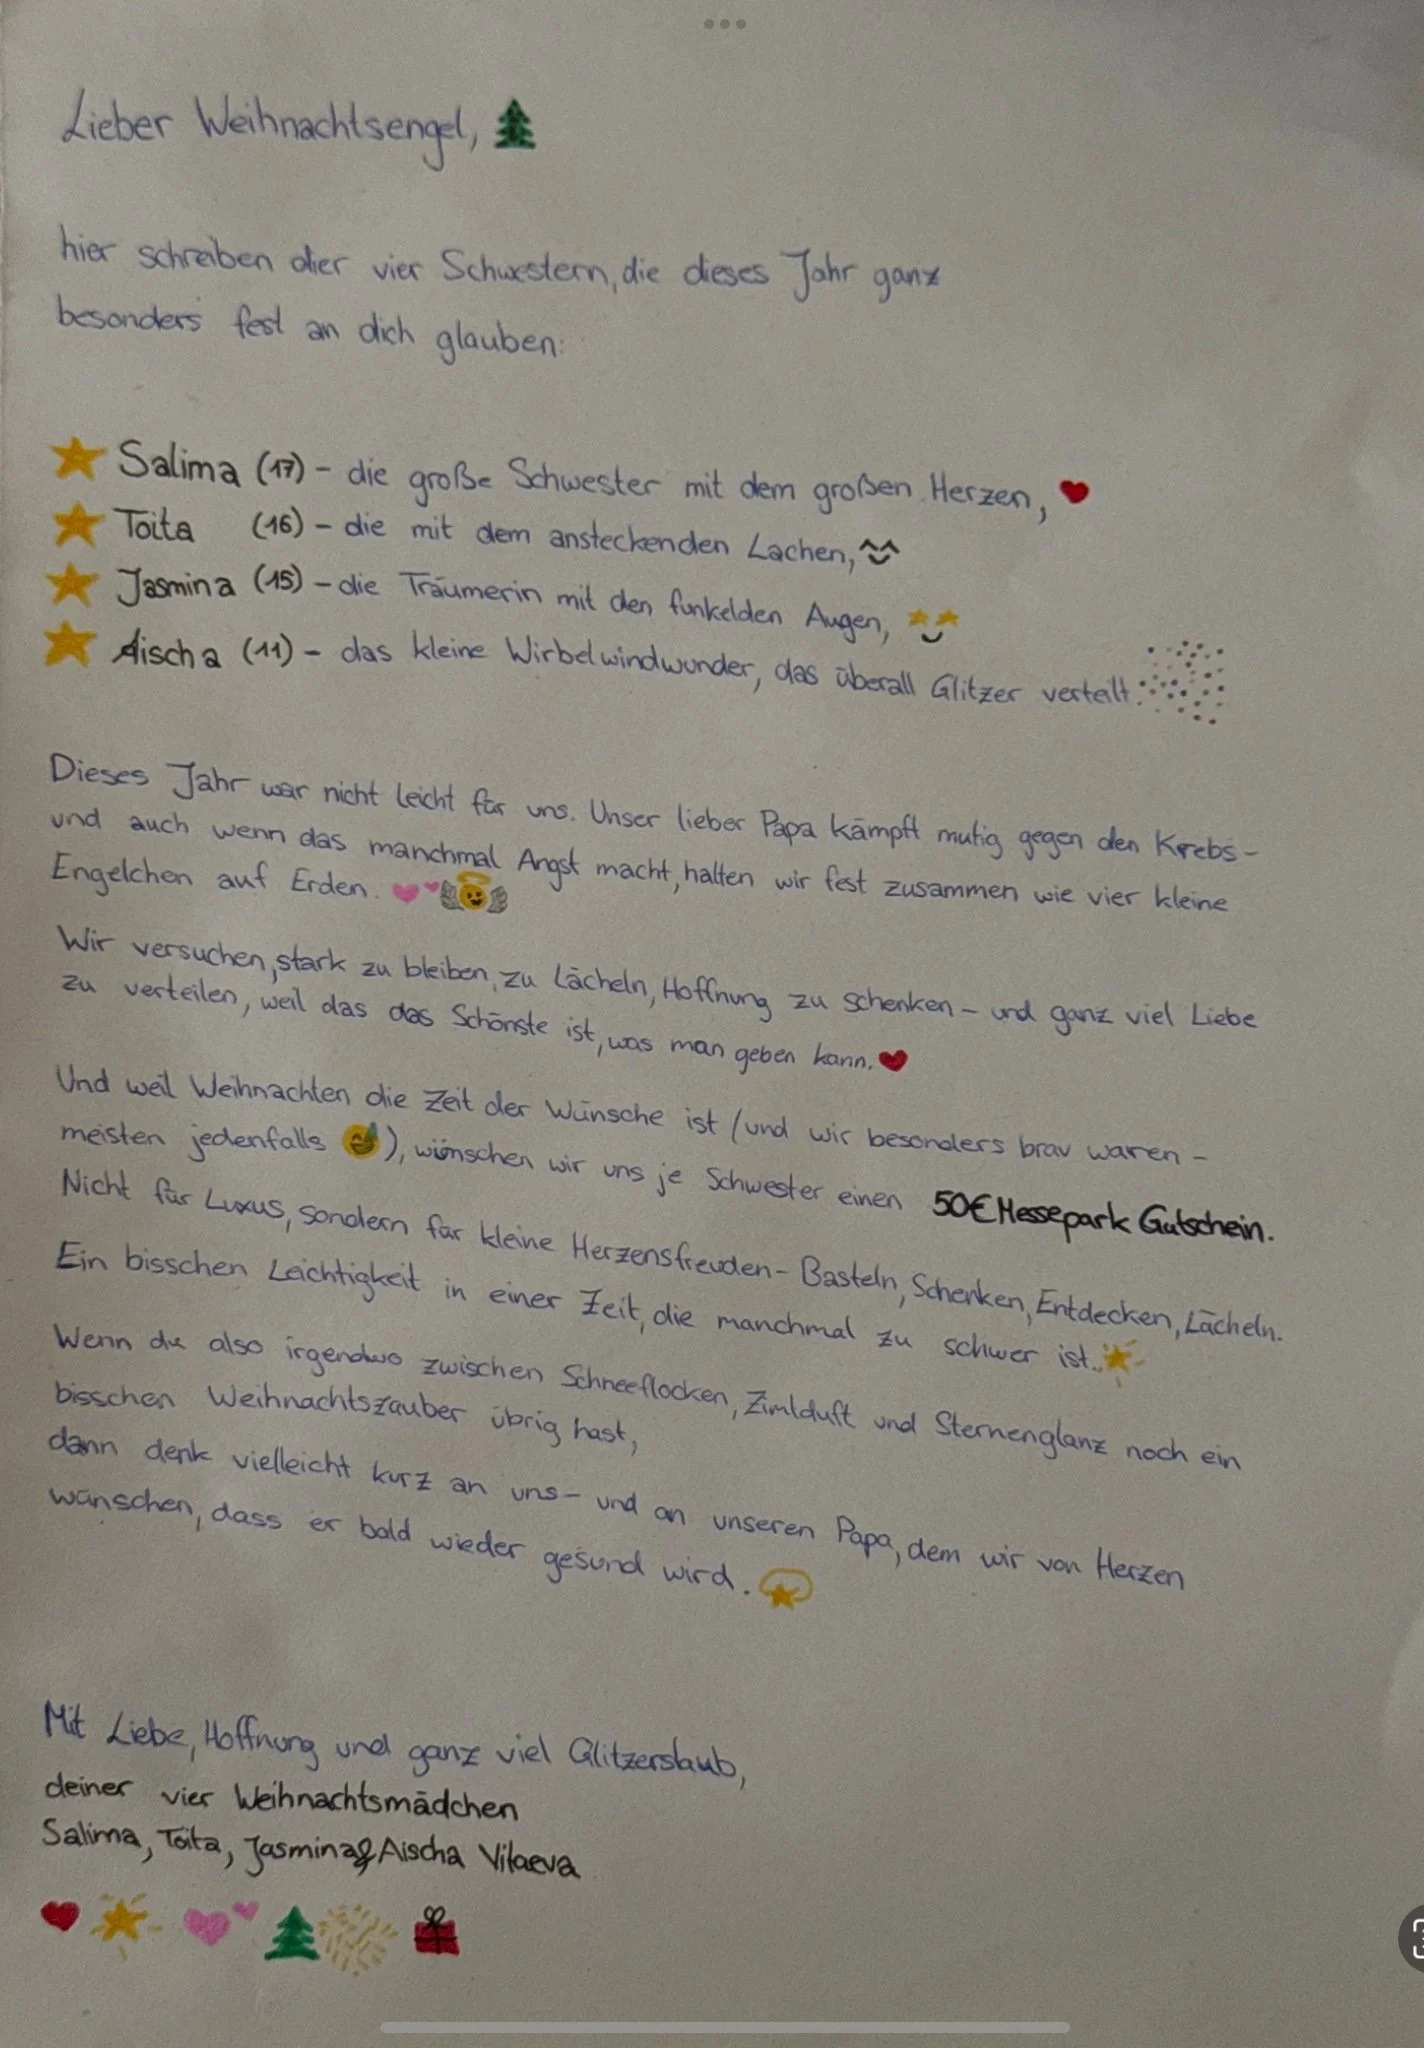 Lieber Weihnachtsengel, 🎄
hier schreiben dier vier Schwestern, die dieses Jahr ganz
besonders fest an dich glauben:
⭐ Salima (17) - die große Schwester mit dem großen Herzen, ❤️
⭐ Toita (16) - die mit dem ansteckenden Lachen, ^^
⭐ Jasmina (15) - die Träumerin mit den funkelden Augen, 🤩
⭐ Aischa (11) - das kleine Wirbelwindwunder, das überall Glitzer verteilt.
Dieses Jahr war nicht leicht für uns. Unser lieber Papa kämpft mutig gegen den Krebs -
und auch wenn das manchmal Angst macht, halten wir fest zusammen wie vier kleine
Engelchen auf Erden. 💕
Wir versuchen, stark zu bleiben, zu Lächeln, Hoffnung zu schenken - und ganz viel Liebe
zu verteilen, weil das das Schönste ist, was man geben kann. ❤️
Und weil Weihnachten die Zeit der Wünsche ist (und wir besonders brav waren -
meisten jedenfalls 😅), wünschen wir uns je Schwester einen 50€ Messepark Gutschein.
Nicht für Luxus, sondern für kleine Herzensfreuden - Basteln, Schenken, Entdecken, Lächeln.
Ein bisschen Leichtigkeit in einer Zeit, die manchmal zu schwer ist.. 🌟
Wenn du also irgendwo zwischen Schneeflocken, Zimtduft und Sternenglanz noch ein
bisschen Weihnachtszauber übrig hast,
dann denk vielleicht kurz an uns - und an unseren Papa, dem wir von Herzen
wünschen, dass er bald wieder gesund wird. 💫
Mit Liebe, Hoffnung und ganz viel Glitzerstaub,
deiner vier Weihnachtsmädchen
Salima, Toita, Jasmina & Aischa Vitaeva
❤️ 🌟 💕 🎄 🎁